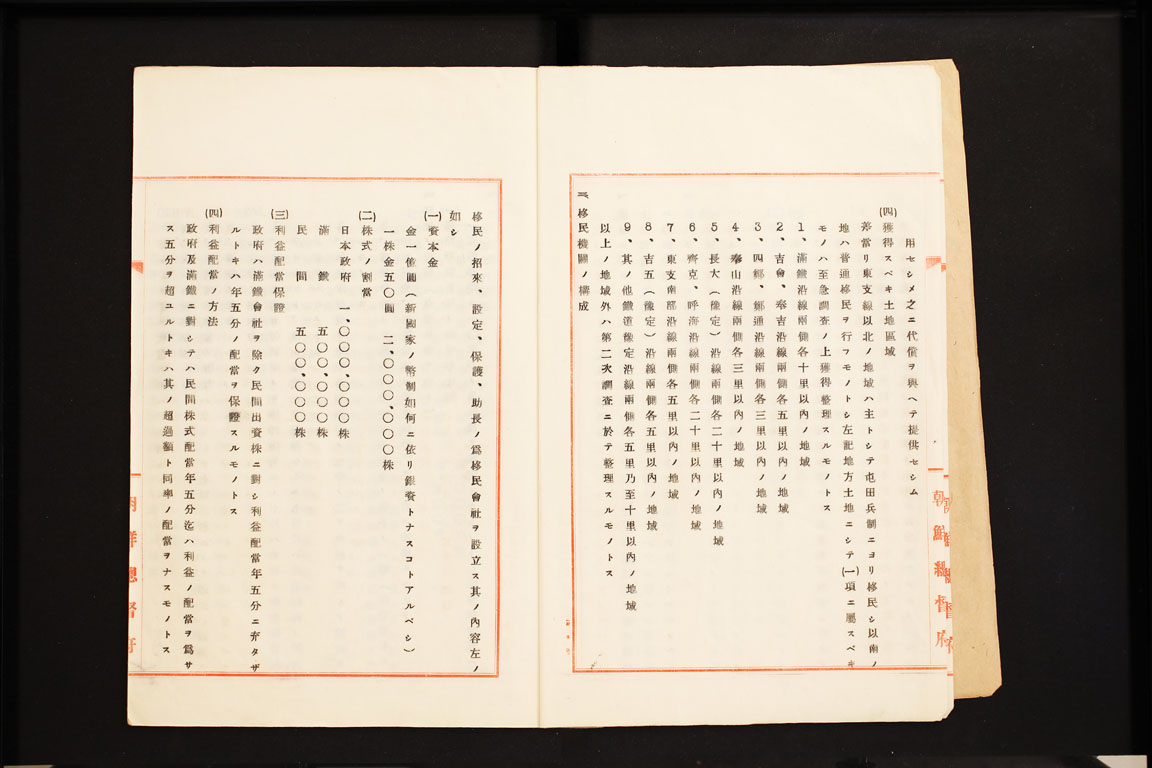 用セシメ之ニ代償ヲ與ヘテ提供セシム
(四)獲得スベキ土地區域
差當リ東支線以北ノ地域ハ主トシテ屯田兵制ニヨリ移民シ以南ノ
地ハ普通移民ヲ行フモノトシ左記地方土地ニシテ(一)項ニ屬スベキ
モノハ至急調査ノ上獲得整理スルモノトス
1、滿鐵沿線兩側各十里以內ノ地域
2、吉會、奉吉沿線兩側各五里以內ノ地域
3、四鄭、鄭通沿線兩側各三里以內ノ地域
4、奉山沿線兩側各三里以內ノ地域
5、長大(豫定)沿線兩側各二十里以內ノ地域
6、齊克、呼海沿線兩側各二十里以內ノ地域
7、東支南部沿線兩側各五里以內ノ地域
8、吉五(豫定)沿線兩側各五里以內ノ地域
9、其ノ他鐵道豫定沿線兩側各五里乃至十里以內ノ地域
以上ノ地域外ハ第二次調査ニ於テ整理スルモノトス
三、移民機關ノ構成
朝鮮總督府
移民ノ招來、設定、保護、助長ノ爲移民會社ヲ設立ス其ノ內容左ノ
如シ
(一)資本金
金一億圓(新國家ノ幣制如何ニ依リ銀資トナスコトアルベシ)
一株金五〇圓 二、〇〇〇、〇〇〇株
(二)株式ノ割當
日本政府 一、〇〇〇、〇〇〇株
滿鐵 五〇〇、〇〇〇株
民間 五〇〇、〇〇〇株
(三)利益配當保證
政府ハ滿鐵會社ヲ除ク民間出資株ニ對シ利益配當年五分ニ充タザ
ルトキハ年五分ノ配當ヲ保證スルモノトス
(四)利益配當ノ方法
政府及滿鐵ニ對シテハ民間株式配當年五分迄ハ利益ノ配當ヲ爲サ
ス五分ヲ超ユルトキハ其ノ超過額ト同率ノ配當ヲナスモノトス
朝鮮總督府